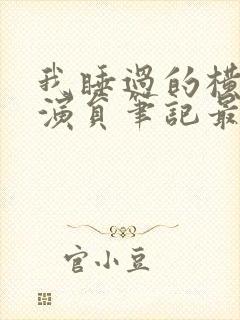 我睡過的橫
演員筆記最
官小豆